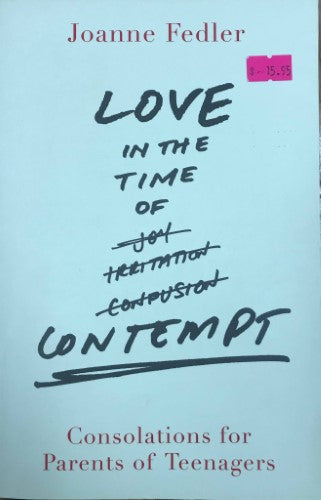 Joanne Fedler
$- 15.95
LOVE
IN THE
TIME
OF
JOY
IRRITATION
CONFUSION
CONTEMPT
Consolations for
Parents of Teenagers